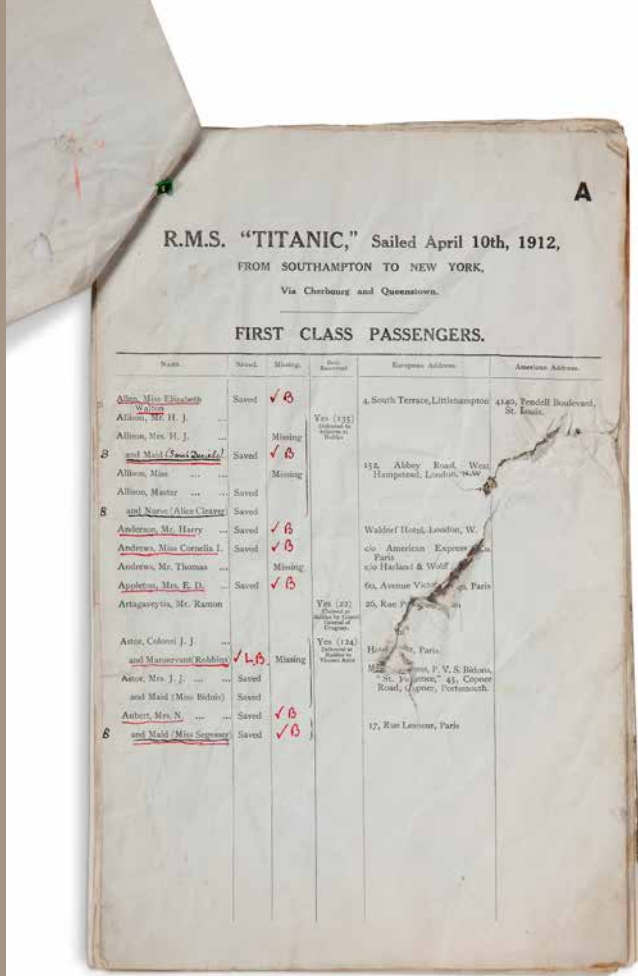 A
R.M.S. "TITANIC," Sailed April 10th, 1912,
FROM SOUTHAMPTON TO NEW YORK,
Via Cherbourg and Queenstown.
FIRST CLASS PASSENGERS.
Name. Saved. Missing. Body Recovered European Address. American Address.
Allen, Miss Elizabeth Saved ✓B 4, South Terrace, Littlehampton 4140, Pendell Boulevard,
Walton St. Louis.
Allison, Mr. H. J. ... Yes (135)
Delivered to
Halifax
Allison, Mrs. H. J. ... Missing
B and Maid (Sarah Daniels) Saved ✓B
152, Abbey Road, West
Allison, Miss ... Missing Hampstead, London, N.W.
Allison, Master ... ... Saved
B and Nurse (Alice Cleaver) Saved
Anderson, Mr. Harry ... Saved ✓B Waldorf Hotel, London, W.
Andrews, Miss Cornelia I. Saved ✓B c/o American Express Co.
Paris
Andrews, Mr. Thomas ... Missing c/o Harland & Wolff
Appleton, Mrs. E. D. ... Saved ✓B 60, Avenue Paris
Artagaveytia, Mr. Ramon Yes (22) 26, Rue
Halifax by Consul
General of
Uruguay.
Astor, Colonel J. J. ... Yes (124)
Delivered at
Halifax to
Vincent Astor
Paris
and Manservant (Robbins) ✓L.B. Missing
P. V. S. Bidois,
Astor, Mrs. J. J. ... ... Saved "St. 45, Copner
Road, Copner, Portsmouth.
and Maid (Miss Bidois) Saved
Aubert, Mrs. N. ... ... Saved ✓B
17, Rue Lesueur, Paris
B and Maid (Miss Segesser) Saved ✓B